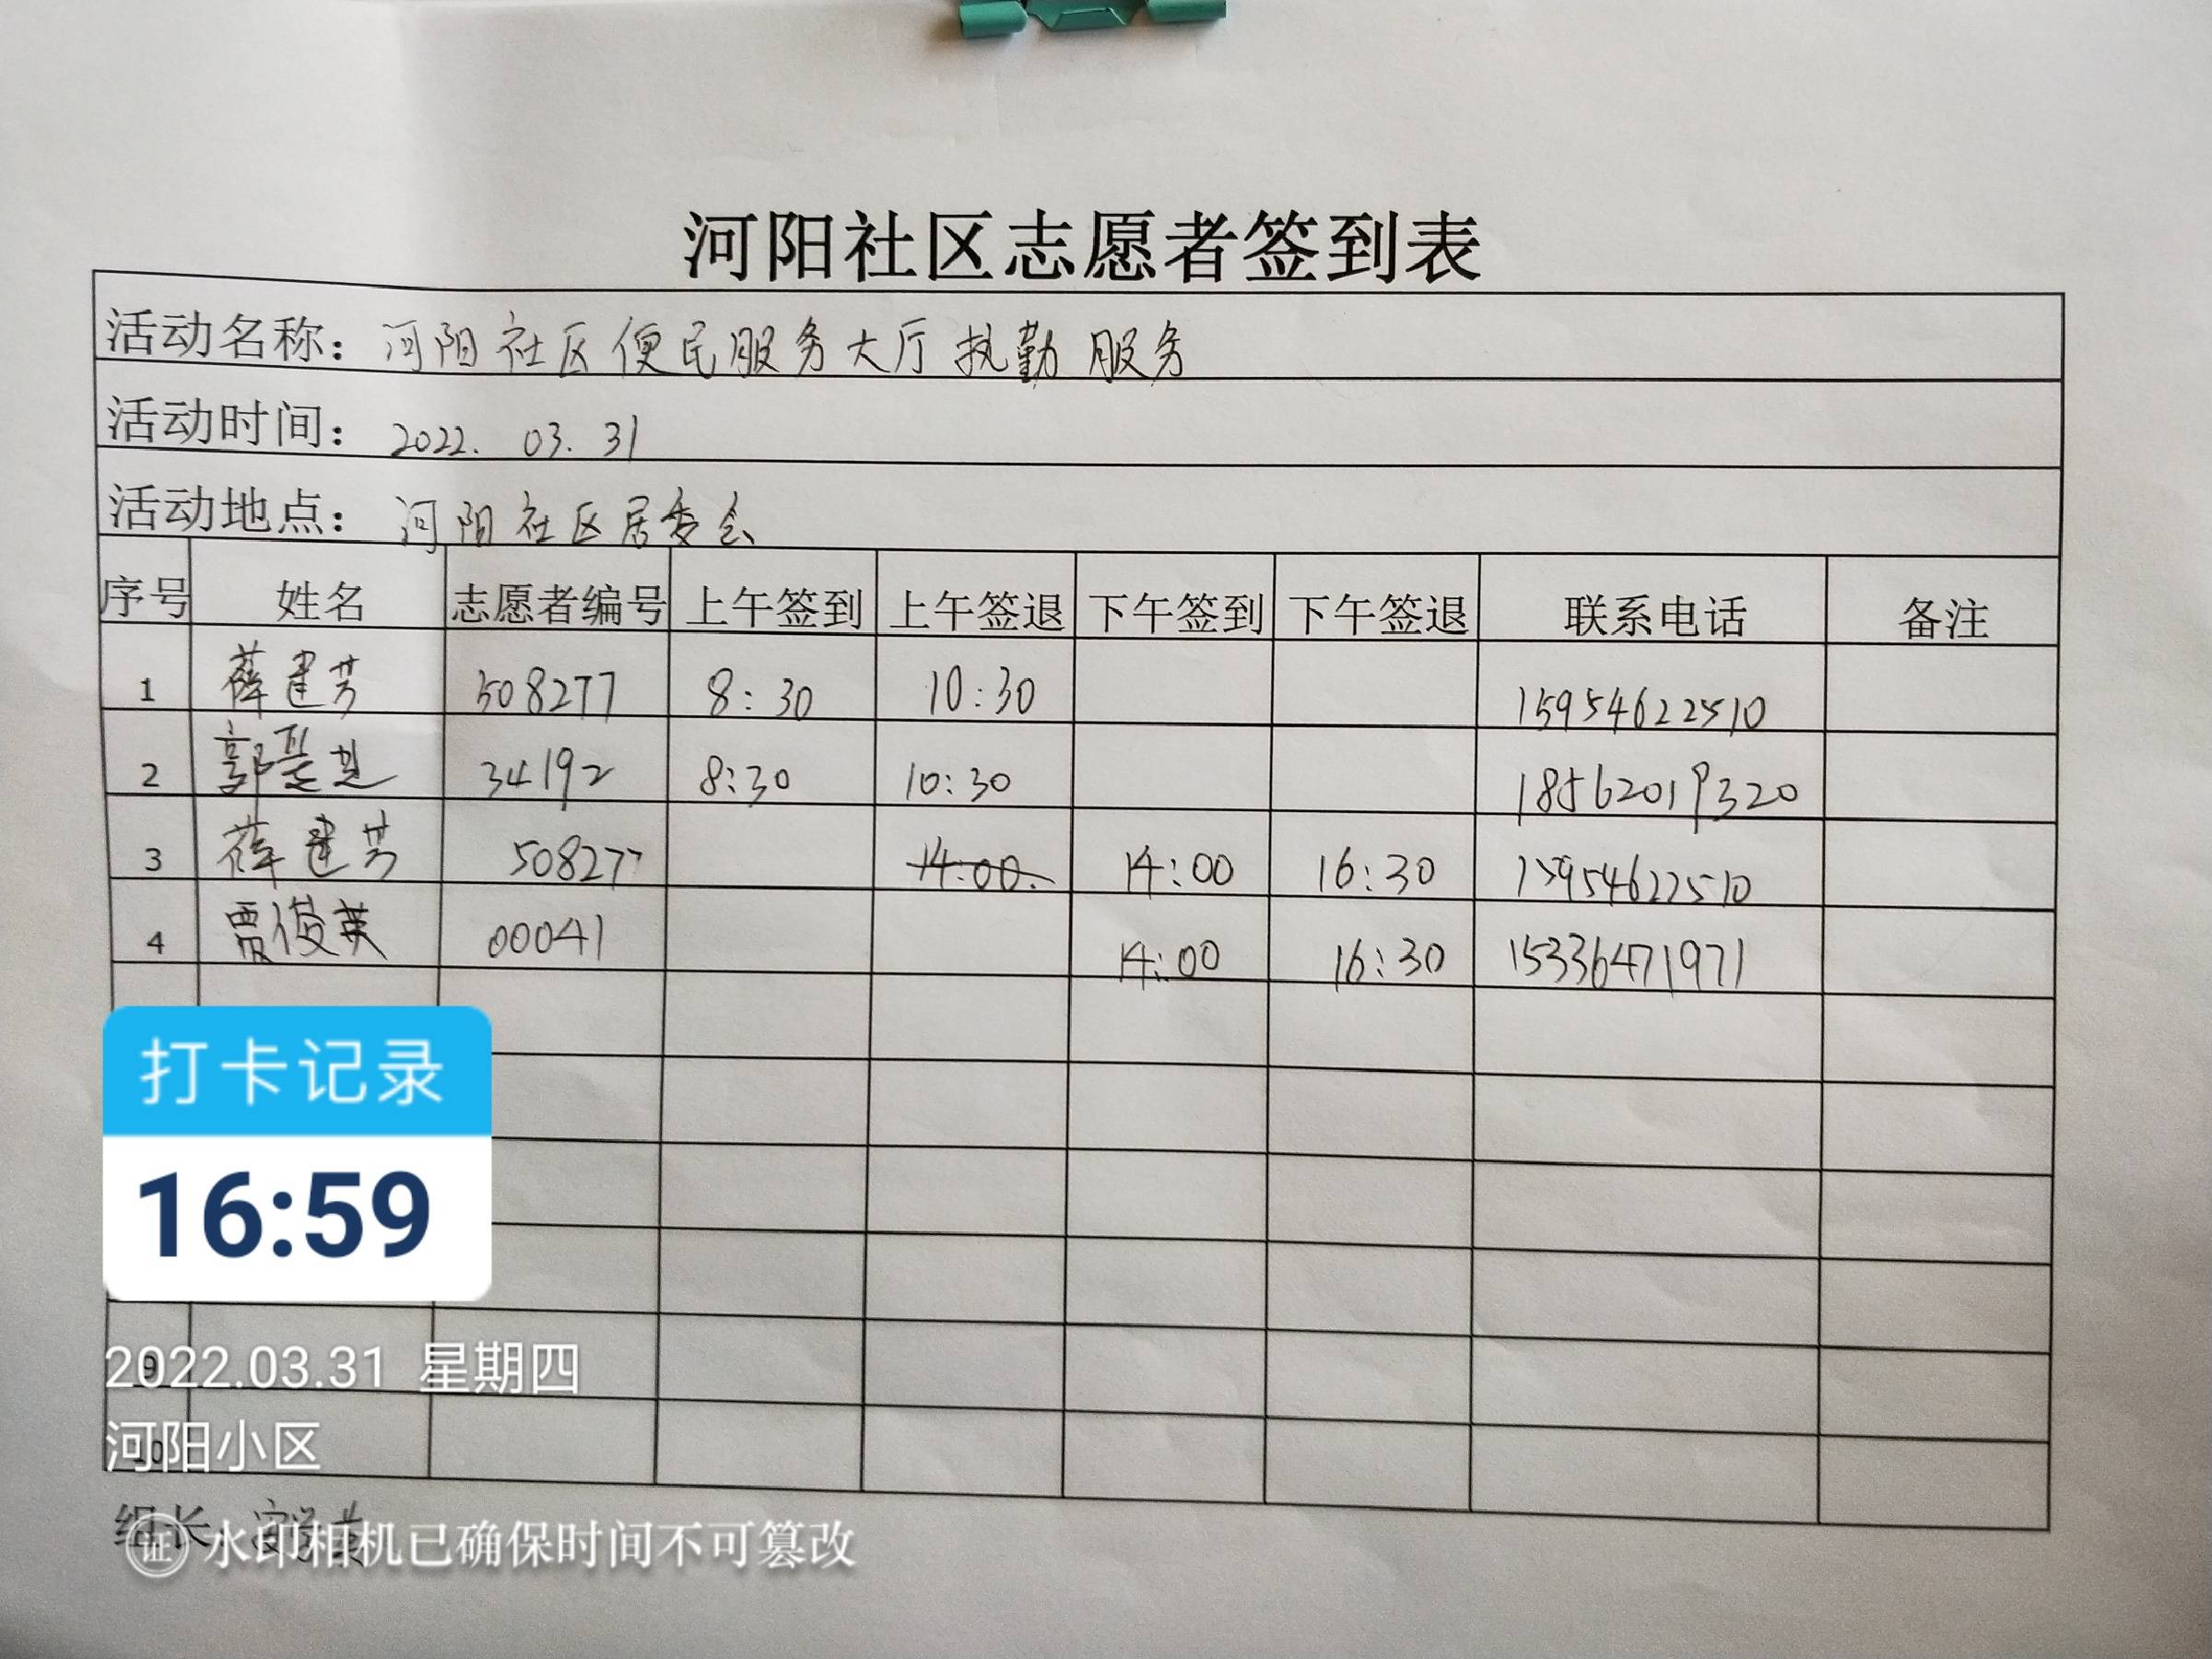 河阳社区志愿者签到表
活动名称：河阳社区便民服务大厅执勤服务
活动时间：2022. 03. 31
活动地点：河阳社区居委会
序号 姓名 志愿者编号 上午签到 上午签退 下午签到 下午签退 联系电话 备注
1 薛建芳 508277 8:30 10:30 15954622510
2 郭 34192 8:30 10:30 18562019320
3 薛建芳 508277 14:00. 14:00 16:30 15954622510
4 贾俊英 00041 14:00 16:30 15336471971
打卡记录
16:59
9
2022.03.31 星期四
10
河阳小区
组长
证 水印相机已确保时间不可篡改